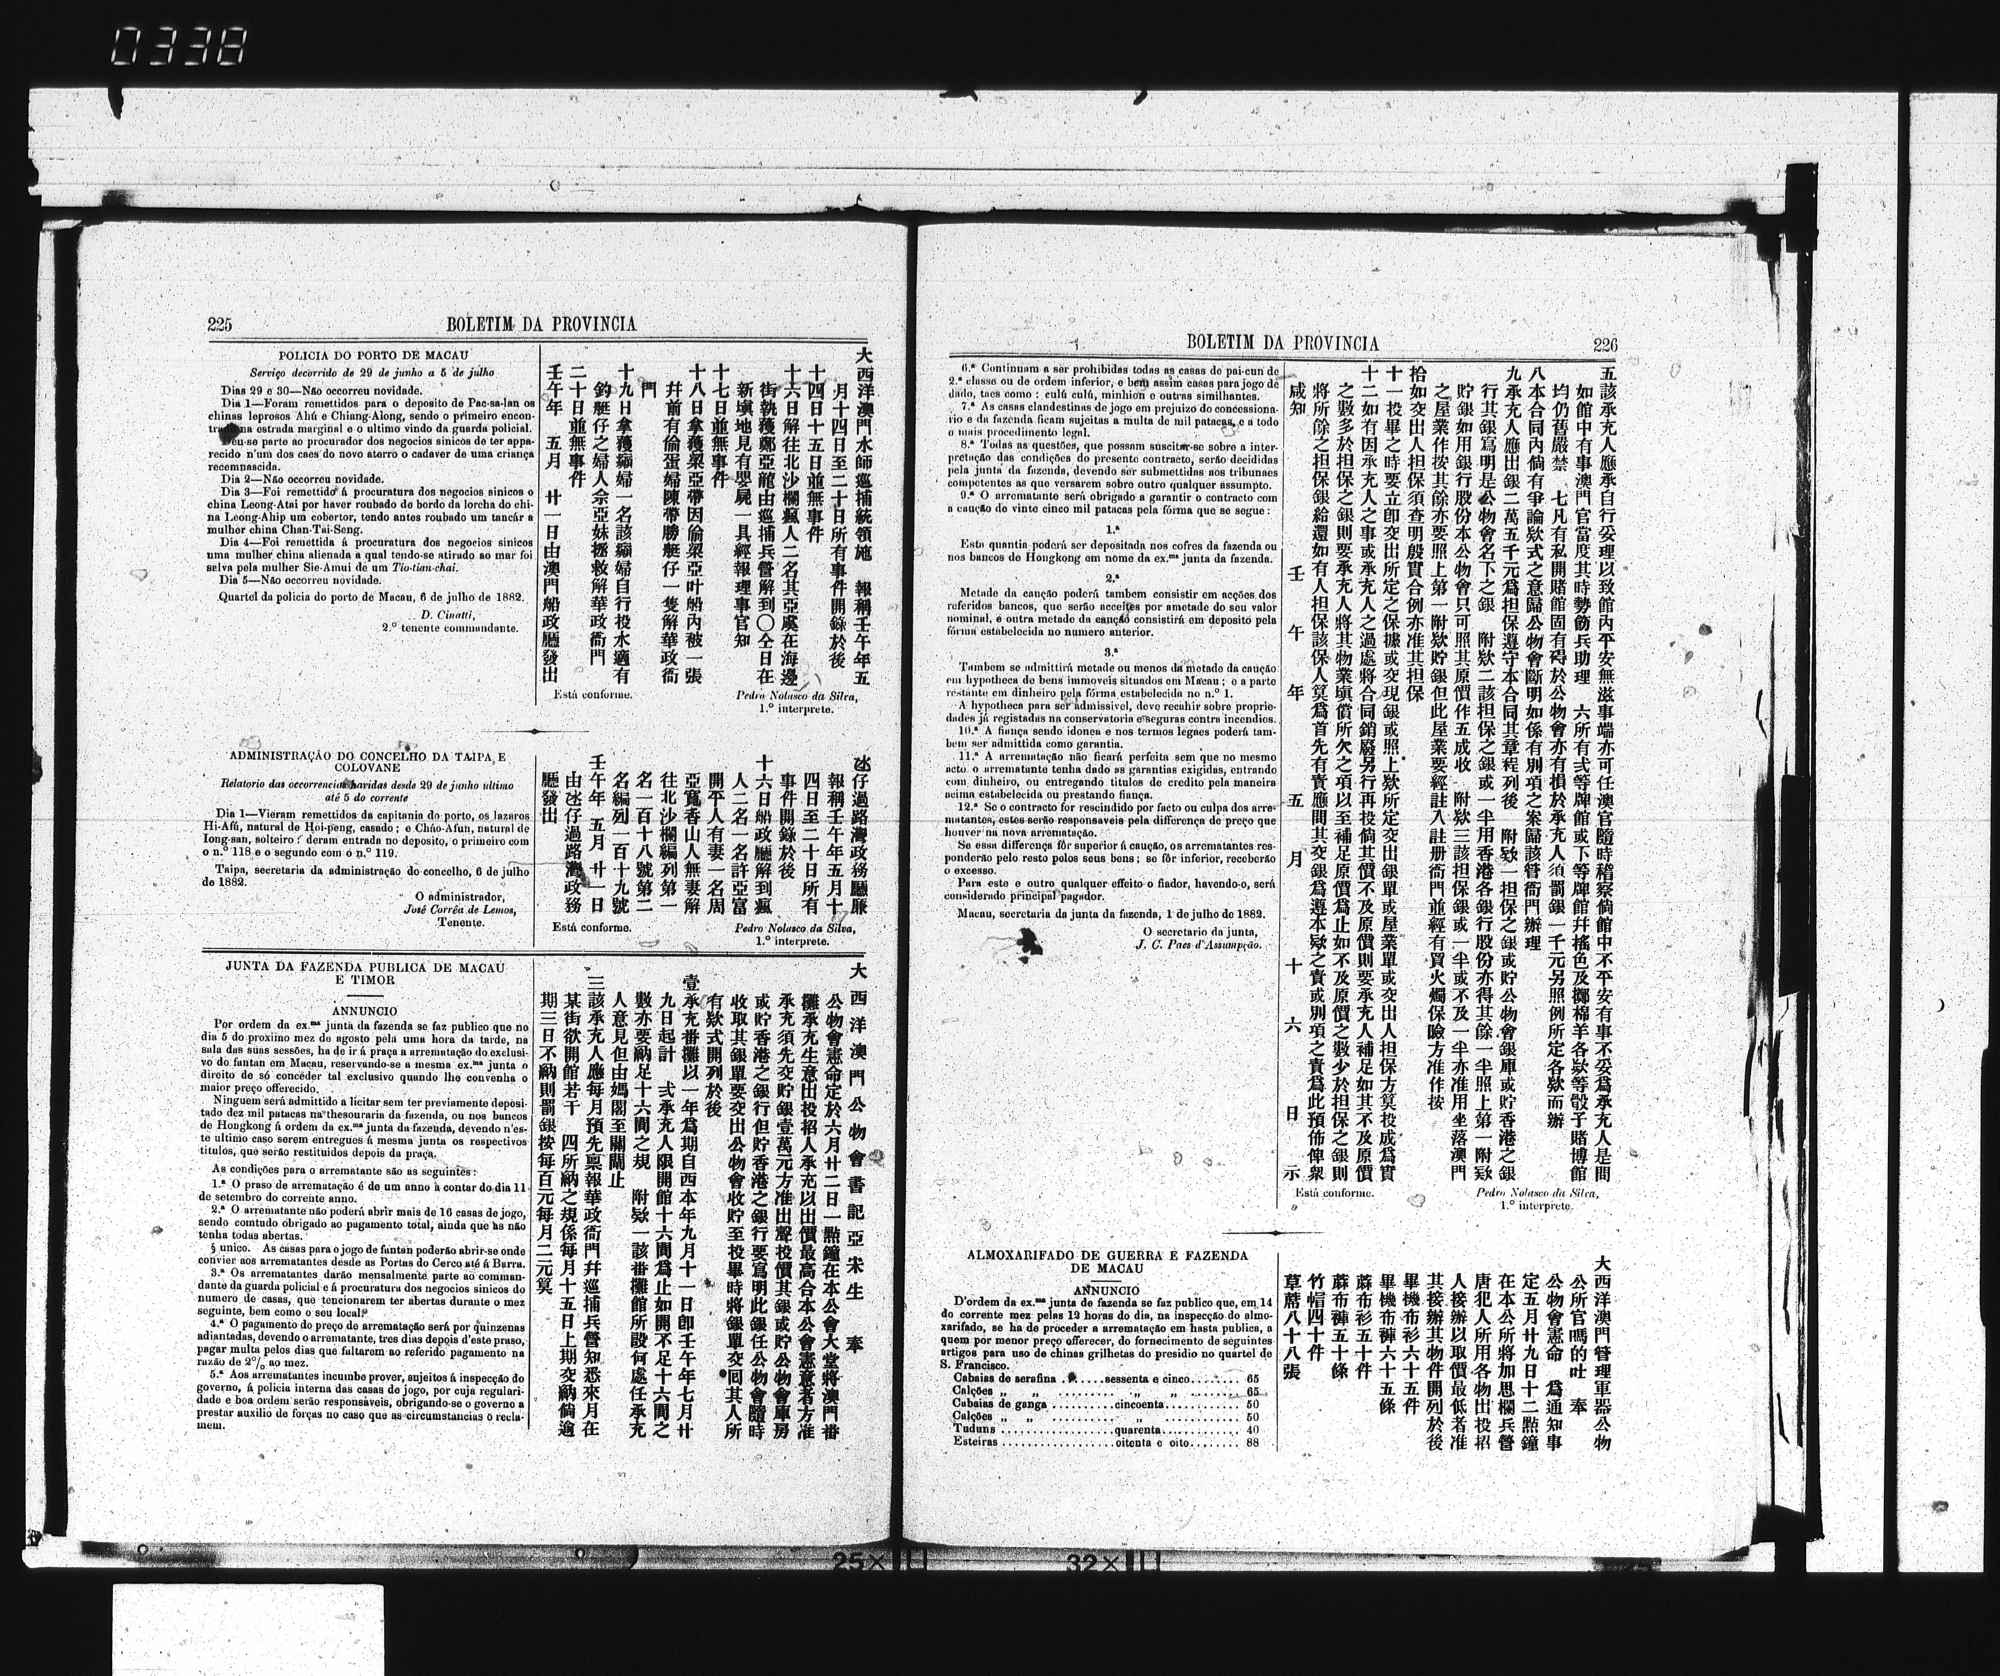 0338
225
BOLETIM DA PROVINCIA
POLICIA DO PORTO DE MACAU
Serviço decorrido de 29 de junho a 5 de julho
Dias 29 e 30—Não occorreu novidade.
Dia 1—Foram remettidos para o deposito de Pac-sa-lan os
chinas leprosos Ahú e Chiang-Along, sendo o primeiro encon-
na estrada marginal e o ultimo vindo da guarda policial.
Deu-se parte ao procurador dos negocios sinicos de ter appa-
recido n'um dos caes do novo aterro o cadaver de uma criança
recemnascida.
Dia 2—Não occorreu novidade.
Dia 3—Foi remettido á procuratura dos negocios sinicos o
china Leong-Atai por haver roubado de bordo da lorcha do chi-
na Leong-Ahip um cobertor, tendo antes roubado um tancár a
mulher china Chan-Tai-Seng.
Dia 4—Foi remettida á procuratura dos negocios sinicos
uma mulher china alienada a qual tendo-se atirado ao mar foi
salva pela mulher Sie-Amui de um Tio-tian-chai.
Dia 5—Não occorreu novidade.
Quartel da policia do porto de Macau, 6 de julho de 1882.
D. Cinatti,
2.º tenente commandante.
大西洋澳門水師巡捕統領施 報稱壬午年五
月十四日至二十日所有事件開錄於後
十四日十五日並無事件
十六日解往北沙欄瘋人二名其亞虞在海邊
街執獲鄭亞龍由巡捕兵營解到〇仝日在
新填地見有嬰屍一具經報理事官知
十七日並無事件
十八日拿獲梁亞帶因偷梁亞叶船內被一張
幷前有偷蛋婦陳帶勝艇仔一隻解華政衙
門
十九日拿獲癲婦一名該癲婦自行投水適有
釣艇仔之婦人佘亞妹拯救解華政衙門
二十日並無事件
壬午年 五月 廿一日由澳門船政廳發出
Está conforme.
Pedro Nolasco da Silva,
1.º interprete.
ADMINISTRAÇÃO DO CONCELHO DA TAIPA E
COLOVANE
Relatorio das occorrencias havidas desde 29 de junho ultimo
até 5 do corrente
Dia 1—Vieram remettidos da capitania do porto, os lazaros
Hi-Afú, natural de Hoi-peng, casado; e Cháo-Afun, natural de
Iong-san, solteiro: deram entrada no deposito, o primeiro com
o n.º 118 e o segundo com o n.º 119.
Taipa, secretaria da administração do concelho, 6 de julho
de 1882.
O administrador,
José Corrêa de Lemos,
Tenente.
氹仔過路灣政務廳廉
報稱壬午年五月十
四日至二十日所有
事件開錄於後
十六日船政廳解到瘋
人二名一名許亞富
開平人有妻一名周
亞寬香山人無妻解
往北沙欄編列第一
名一百十八號第二
名編列一百十九號
壬午年 五月 廿一日
由氹仔過路灣政務
廳發出
Está conforme.
Pedro Nolasco da Silva,
1.º interprete.
JUNTA DA FAZENDA PUBLICA DE MACAU
E TIMOR
ANNUNCIO
Por ordem da ex.ma junta da fazenda se faz publico que no
dia 5 do proximo mez de agosto pela uma hora da tarde, na
sala das suas sessões, ha de ir á praça a arrematação do exclusi-
vo do fantan em Macau, reservando-se a mesma ex.ma junta o
direito de só conceder tal exclusivo quando lhe convenha o
maior preço offerecido.
Ninguem será admittido a licitar sem ter previamente deposi-
tado dez mil patacas na thesouraria da fazenda, ou nos bancos
de Hongkong á ordem da ex.ma junta da fazenda, devendo n'es-
te ultimo caso serem entregues á mesma junta os respectivos
titulos, que serão restituidos depois da praça.
As condições para o arrematante são as seguintes:
1.ª O praso de arrematação é de um anno a contar do dia 11
de setembro do corrente anno.
2.ª O arrematante não poderá abrir mais de 16 casas de jogo,
sendo comtudo obrigado ao pagamento total, ainda que as não
tenha todas abertas.
§ unico. As casas para o jogo de fantan poderão abrir-se onde
convier aos arrematantes desde as Portas do Cerco até á Barra.
3.ª Os arrematantes darão mensalmente parte ao comman-
dante da guarda policial e á procuratura dos negocios sinicos do
numero de casas, que tencionarem ter abertas durante o mez
seguinte, bem como o seu local.
4.ª O pagamento do preço de arrematação será por quinzenas
adiantadas, devendo o arrematante, tres dias depois d'este praso,
pagar multa pelos dias que faltarem ao referido pagamento na
razão de 2% ao mez.
5.ª Aos arrematantes incumbe prover, sujeitos á inspecção do
governo, á policia interna das casas de jogo, por cuja regulari-
dade e boa ordem serão responsaveis, obrigando-se o governo a
prestar auxilio de forças no caso que as circumstancias o recla-
mem.
大西洋澳門公物會書記亞宋生 奉
公物會憲命定於六月廿二日一點鐘在本公會大堂將澳門番
攤承充生意出投招人承充以出價最高合本公會憲意者方准
承充須先交貯銀壹萬元方准出聲投價其銀或貯公物會庫房
或貯香港之銀行但貯香港之銀行要寫明此銀任公物會隨時
收取其銀單要交出公物會收貯至投畢時將銀單交回其人所
有欵式開列於後
壹承充番攤以一年爲期自西本年九月十一日卽壬午年七月廿
九日起計 弍承充人限開館十六間爲止如開不足十六間之
數亦要納足十六間之規 附欵一該番攤館所設何處任承充
人意見但由媽閣至關閘止
三該承充人應每月預先禀報華政衙門幷巡捕兵營知悉來月在
某街欲開館若干 四所納之規係每月十五日上期交納倘逾
期三日不納則罰銀按每百元每月二元算
BOLETIM DA PROVINCIA
226
6.ª Continuam a ser prohibidas todas as casas de pai-cun de
2.ª classe ou de ordem inferior, e bem assim casas para jogo de
dado, taes como: culú culú, minhion e outras similhantes.
7.ª As casas clandestinas de jogo em prejuizo do concessiona-
rio e da fazenda ficam sujeitas a multa de mil patacas, e a todo
o mais procedimento legal.
8.ª Todas as questões, que possam suscitar-se sobre a inter-
pretação das condições do presente contracto, serão decididas
pela junta da fazenda, devendo ser submettidas aos tribunaes
competentes as que versarem sobre outro qualquer assumpto.
9.ª O arrematante será obrigado a garantir o contracto com
a caução de vinte cinco mil patacas pela fórma que se segue:
1.ª
Esta quantia poderá ser depositada nos cofres da fazenda ou
nos bancos de Hongkong em nome da ex.ma junta da fazenda.
2.ª
Metade da caução poderá tambem consistir em acções dos
referidos bancos, que serão acceites por ametade do seu valor
nominal, e outra metade da caução consistirá em deposito pela
fórma estabelecida no numero anterior.
3.ª
Tambem se admittirá metade ou menos da metade da caução
em hypotheca de bens immoveis situados em Macau; e a parte
restante em dinheiro pela fórma estabelecida no n.º 1.
A hypotheca para ser admissivel, deve recahir sobre proprie-
dades já registadas na conservatoria e seguras contra incendios.
10.ª A fiança sendo idonea e nos termos legaes poderá tam-
bem ser admittida como garantia.
11.ª A arrematação não ficará perfeita sem que no mesmo
acto o arrematante tenha dado as garantias exigidas, entrando
com dinheiro, ou entregando titulos de credito pela maneira
acima estabelecida ou prestando fiança.
12.ª Se o contracto for rescindido por facto ou culpa dos arre-
matantes, estes serão responsaveis pela differença de preço que
houver na nova arrematação.
Se essa differença fôr superior á caução, os arrematantes res-
ponderão pelo resto pelos seus bens; se fôr inferior, receberão
o excesso.
Para este e outro qualquer effeito o fiador, havendo-o, será
considerado principal pagador.
Macau, secretaria da junta da fazenda, 1 de julho de 1882.
O secretario da junta,
J. C. Paes d'Assumpção.
五該承充人應承自行妥理以致館內平安無滋事端亦可任澳官隨時稽察倘館中不平安有事不妥爲承充人是問
如館中有事澳門官當度其時勢飭兵助理 六所有弍等牌館或下等牌館幷搖色及擲棉羊各欵等骰子賭博館
均仍舊嚴禁 七凡有私開賭館固有碍於公物會亦有損於承充人須罰銀一千元另照例所定各欵而辦
八本合同內倘有爭論欵式之意歸公物會斷明如係有別項之案歸該管衙門辦理
九承充人應出銀二萬五千元爲担保遵守本合同其章程列後 附欵一担保之銀或貯公物會銀庫或貯香港之銀
行其銀寫明是公物會名下之銀 附欵二該担保之銀或一半用香港各銀行股份亦得其餘一半照上第一附欵
貯銀如用銀行股份本公物會只可照其原價作五成收 附欵三該担保銀或一半或不及一半亦准用坐落澳門
之屋業作按其餘亦要照上第一附欵貯銀但此屋業要經註入註册衙門並經有買火燭保險方准作按
拾如交出人担保須查明殷實合例亦准其担保
十一投畢之時要立卽交出所定之保據或交現銀或照上欵所定交出銀單或屋業單或交出人担保方算投成爲實
十二如有因承充人之事或承充人之過處將合同銷廢另行再投倘其價不及原價則要承充人補足如其不及原價
之數多於担保之銀則要承充人將其物業填償所欠之項以至補足原價爲止如不及原價之數少於担保之銀則
將所餘之担保銀給還如有人担保該保人算爲首先有責應問其交銀爲遵本欵之責或別項之責爲此預佈俾衆
咸知 壬午年五月十六日示
Está conforme.
Pedro Nolasco da Silva,
1.º interprete.
ALMOXARIFADO DE GUERRA E FAZENDA
DE MACAU
ANNUNCIO
D'ordem da ex.ma junta de fazenda se faz publico que, em 14
do corrente mez pelas 12 horas do dia, na inspecção do almo-
xarifado, se ha de proceder a arrematação em hasta publica, a
quem por menor preço offerecer, do fornecimento de seguintes
artigos para uso de chinas grilhetas do presidio no quartel de
S. Francisco.
Cabaias de serafina ........sessenta e cinco........ 65
Calções „ „ ........ „ „ ........ 65
Cabaias de ganga ..........cincoenta............. 50
Calções „ „ .......... „ ............. 50
Tuduns ..................quarenta............. 40
Esteiras ..................oitenta e oito........ 88
大西洋澳門管理軍器公物
公所官嗎的吐 奉
公物會憲命 爲通知事
定五月廿九日十二點鐘
在本公所將加思欄兵營
唐犯人所用各物出投招
人接辦以取價最低者准
其接辦其物件開列於後
畢機布衫六十五件
畢機布褲六十五條
蔴布衫五十件
蔴布褲五十條
竹帽四十件
草蓆八十八張
25×
32×